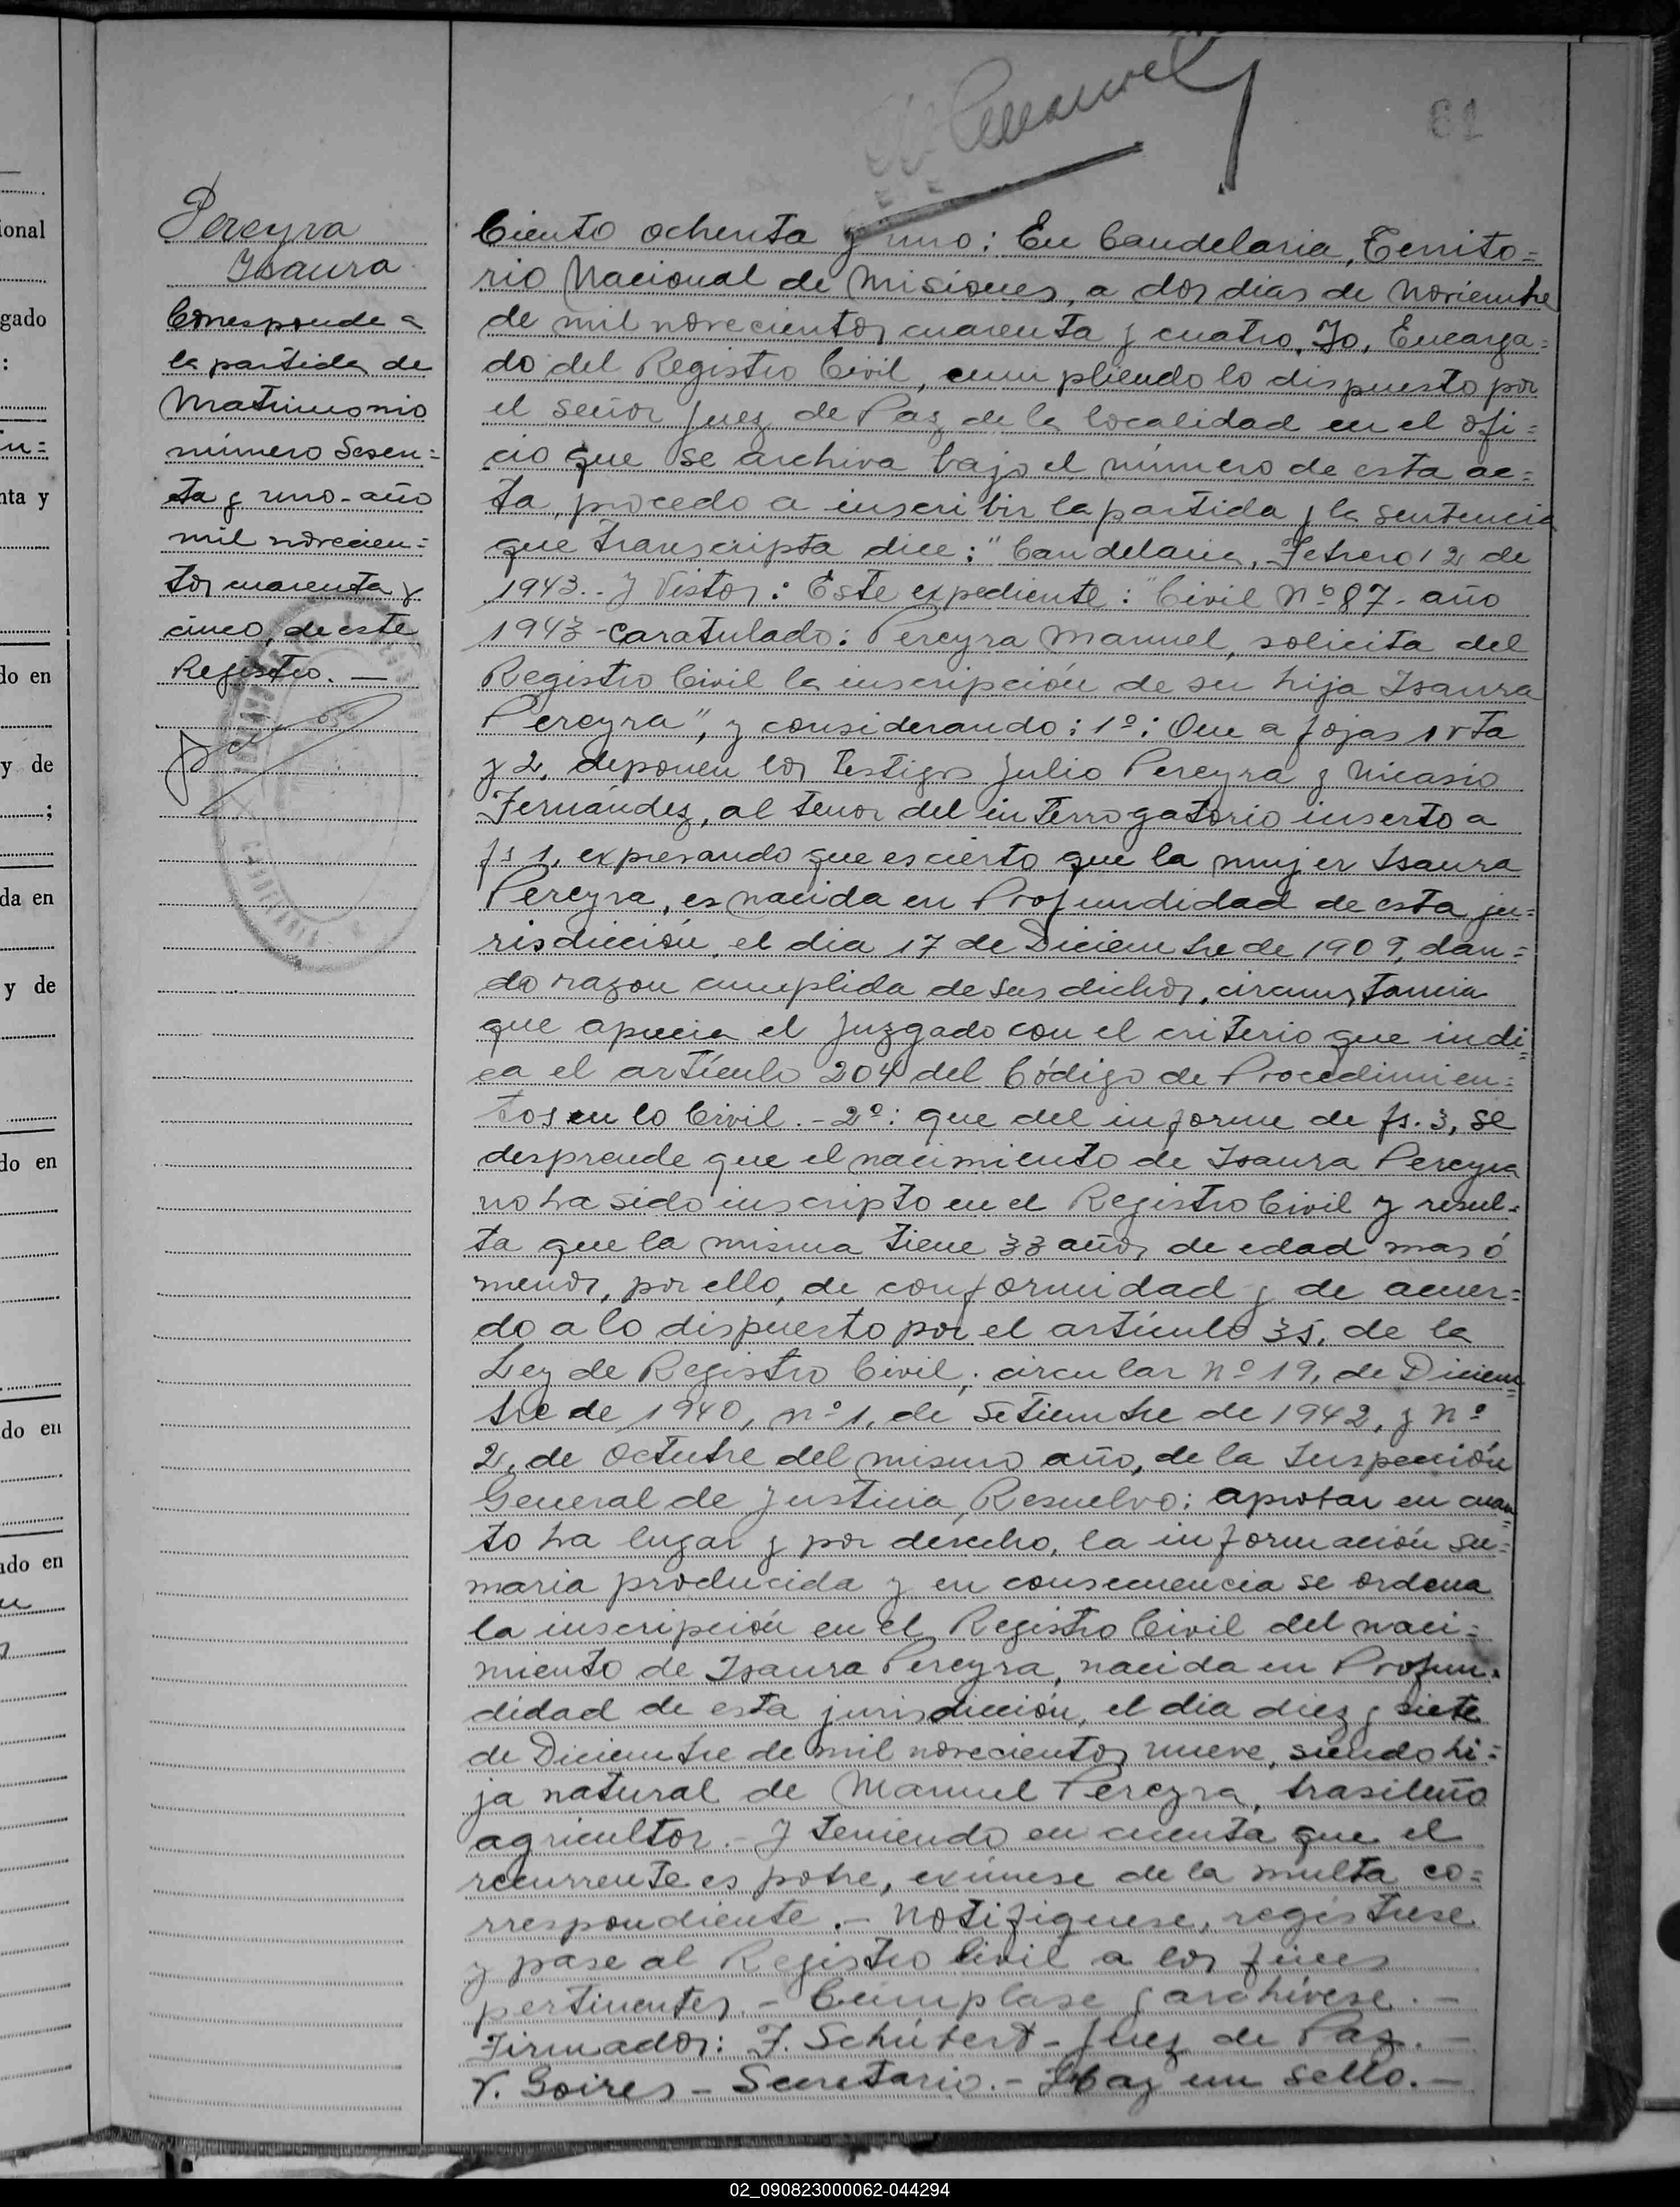 61
Pereyra
Isaura
Corresponde a
la partida de
Matrimonio
número Sesen=
ta y uno - año
mil novecien=
tos cuarenta y
cinco, de este
Registro. —
Ciento ochenta y uno: En Candelaria, Territo=
rio Nacional de Misiones, a dos dias de Noviembre
de mil novecientos cuarenta y cuatro, Yo, Encarga=
do del Registro Civil, cumpliendo lo dispuesto por
el señor Juez de Paz de la localidad en el ofi=
cio que se archiva bajo el número de esta ac=
ta, procedo a inscribir la partida y la sentencia
que transcripta dice: "Candelaria, Febrero 12 de
1943.- Y Vistos: Este expediente: "Civil Nº 87 - año
1943 - caratulado: Pereyra Manuel, solicita del
Registro Civil la inscripción de su hija Isaura
Pereyra", y considerando: 1º: Que a fojas 1 vta
y 2, deponen los testigos Julio Pereyra y Nicasio
Fernández, al tenor del interrogatorio inserto a
fs 1, expresando que es cierto que la mujer Isaura
Pereyra, es nacida en Profundidad de esta ju=
risdicción, el dia 17 de Diciembre de 1909, dan=
do razon cumplida de sus dichos, circunstancia
que aprecia el Juzgado con el criterio que indi=
ca el artículo 204 del Código de Procedimien=
tos en lo Civil. - 2º: que del informe de fs. 3, se
desprende que el nacimiento de Isaura Pereyra
no ha sido inscripto en el Registro Civil y resul=
ta que la misma tiene 33 años de edad mas ó
menos, por ello, de conformidad y de acuer=
do a lo dispuesto por el artículo 35, de la
Ley de Registro Civil; circular nº 19, de Diciem=
bre de 1940, nº 1, de Setiembre de 1942, y nº
2, de Octubre del mismo año, de la Inspección
General de Justicia, Resuelvo: aprobar en cuan=
to ha lugar y por derecho, la información su=
maria producida y en consecuencia se ordena
la inscripción en el Registro Civil del naci=
miento de Isaura Pereyra, nacida en Profun=
didad de esta jurisdicción, el dia diez y siete
de Diciembre de mil novecientos nueve, siendo hi=
ja natural de Manuel Pereyra, brasileño
agricultor. - Y teniendo en cuenta que el
recurrente es pobre, exímese de la multa co=
rrespondiente. - Notifíquese, regístrese
y pase al Registro Civil a los fines
pertinentes. - Cúmplase y archívese. -
Firmados: F. Schúbert - Juez de Paz. -
V. Goires - Secretario. - Hay un sello. -
ional
gado
:
in=
nta y
do en
y de
;
da en
y de
do en
do en
ado en
02_090823000062-044294